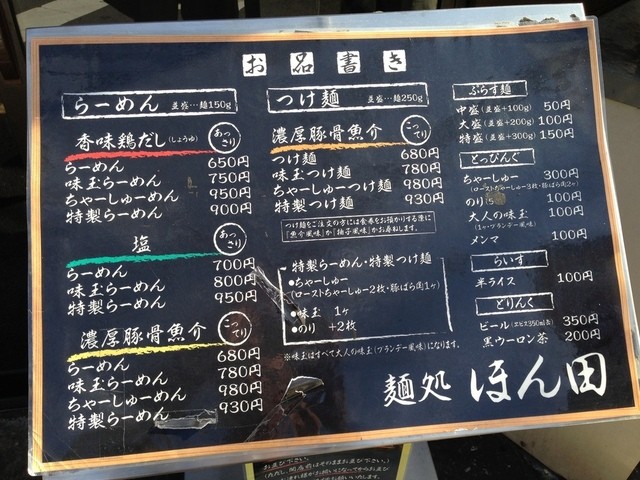 お品書き
らーめん 並盛…麺150g
香味鶏だし(しょうゆ) あっさり
らーめん 650円
味玉らーめん 750円
ちゃーしゅーめん 950円
特製らーめん 900円
塩 あっさり
らーめん 700円
味玉らーめん 800円
特製らーめん 950円
濃厚豚骨魚介 こってり
らーめん 680円
味玉らーめん 780円
ちゃーしゅーめん 980円
特製らーめん 930円
つけ麺 並盛…麺250g
濃厚豚骨魚介 こってり
つけ麺 680円
味玉つけ麺 780円
ちゃーしゅーつけ麺 980円
特製つけ麺 930円
つけ麺をご注文の方には食券をお預かりする際に
「魚介風味」か「柚子風味」かお尋ねします。
特製らーめん・特製つけ麺
●ちゃーしゅー
(ローストちゃーしゅー2枚・豚ばら肉1ヶ)
●味玉 1ヶ
●のり +2枚
※味玉はすべて大人の味玉(ブランデー風味)になります。
ぷらす麺
中盛(並盛+100g) 50円
大盛(並盛+200g) 100円
特盛(並盛+300g) 150円
とっぴんぐ
ちゃーしゅー 300円
(ローストちゃーしゅー3枚・豚ばら肉2ヶ)
のり 100円
大人の味玉 100円
(1ヶ・ブランデー風味)
メンマ 100円
らいす
半ライス 100円
どりんく
ビール(ヱビス350ml缶) 350円
黒ウーロン茶 200円
麺処 ほん田
お並び下さい。